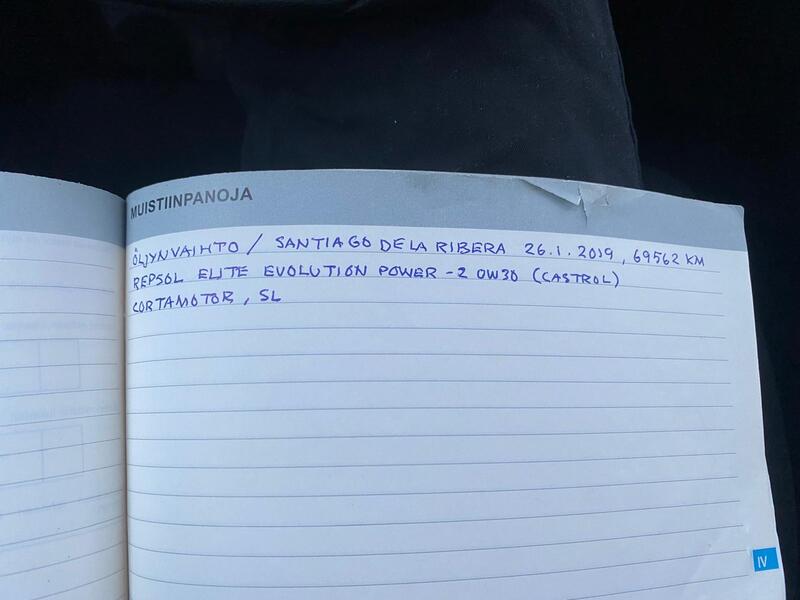 MUISTIINPANOJA
ÖLJYNVAIHTO / SANTIAGO DE LA RIBERA 26.1.2019, 69562 KM
REPSOL ELITE EVOLUTION POWER -2 0W30 (CASTROL)
CORTAMOTOR, SL
IV